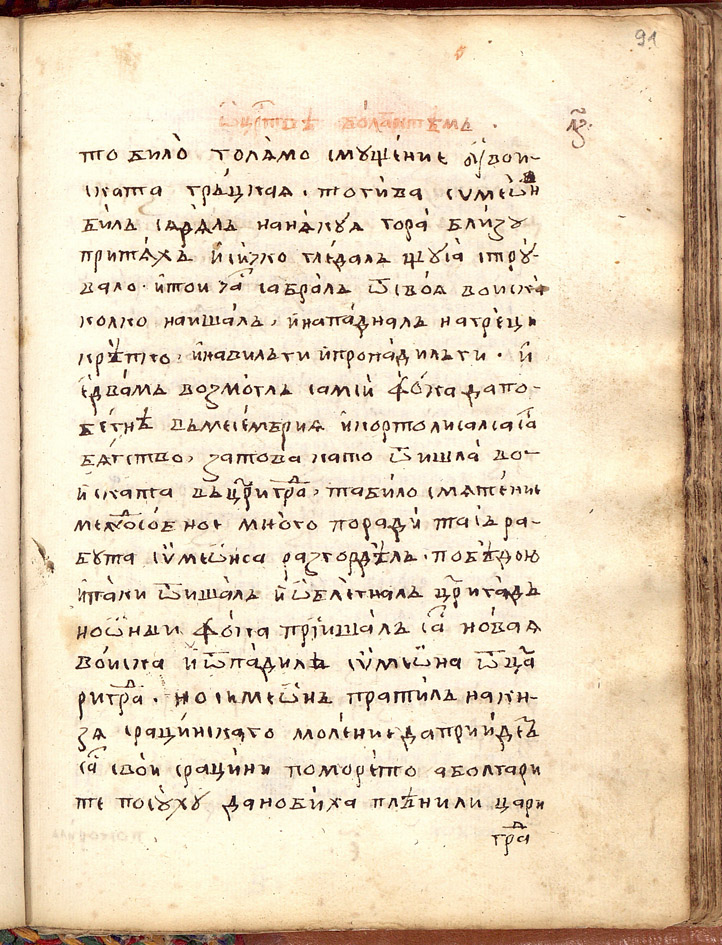 91
ѽ црⷭ҇твѣ болгарстѣмъ
л҃з.
то било голѧмо смꙋщенїе ᲂу вои-
ската грѣцкая. тогива сѵмеѡⷩ҇
билъ сѧдѧлъ нанѧкꙋꙗ гора близꙋ
притѧхъ и низко гледалъ щꙋ ся стрꙋ-
вало. и тои ча҇ сабралъ ѿ своя воиска
колко наишалъ, и нападналъ на греци
крѣпко, и навилъ ги и пропадилъ ги. и
едвамъ возмоглъ самїи фока да по-
бегнѣ въ месемврия и кортолисалса са҇
бѧгство, затова като ѿишла во-
иската въ цр҃игра⁠ⷣ, та било смѧтенїе
меѫⷣособное много поради таѧ ра-
бута сѵмеѡнса разгордѣлъ. побѣдою
и паки ѿишалъ и ѡблегналъ цр҃игрⷣадъ
но ѡньи фока прїишалъ са҇ новая
воиска и ѿпадилъ сѵмеѡна ѿ ца-
риграⷣ. но симеѡнъ пратилъ на кн-
зя срацинскаго моленїе да прїидеⷮъ
са҇ свои срацини по морето а болгари
те по сꙋхꙋ да но биха плѣнили цари
граⷣ